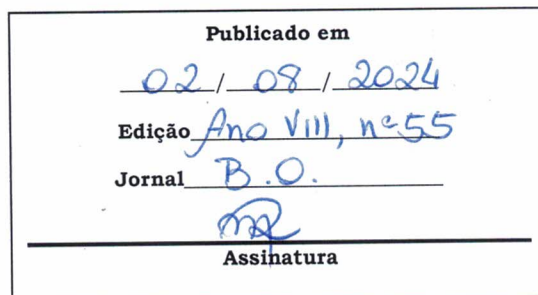 Publicado em
02 / 08 / 2024
Edição Ano VIII, nº 55
Jornal B.O.
Assinatura